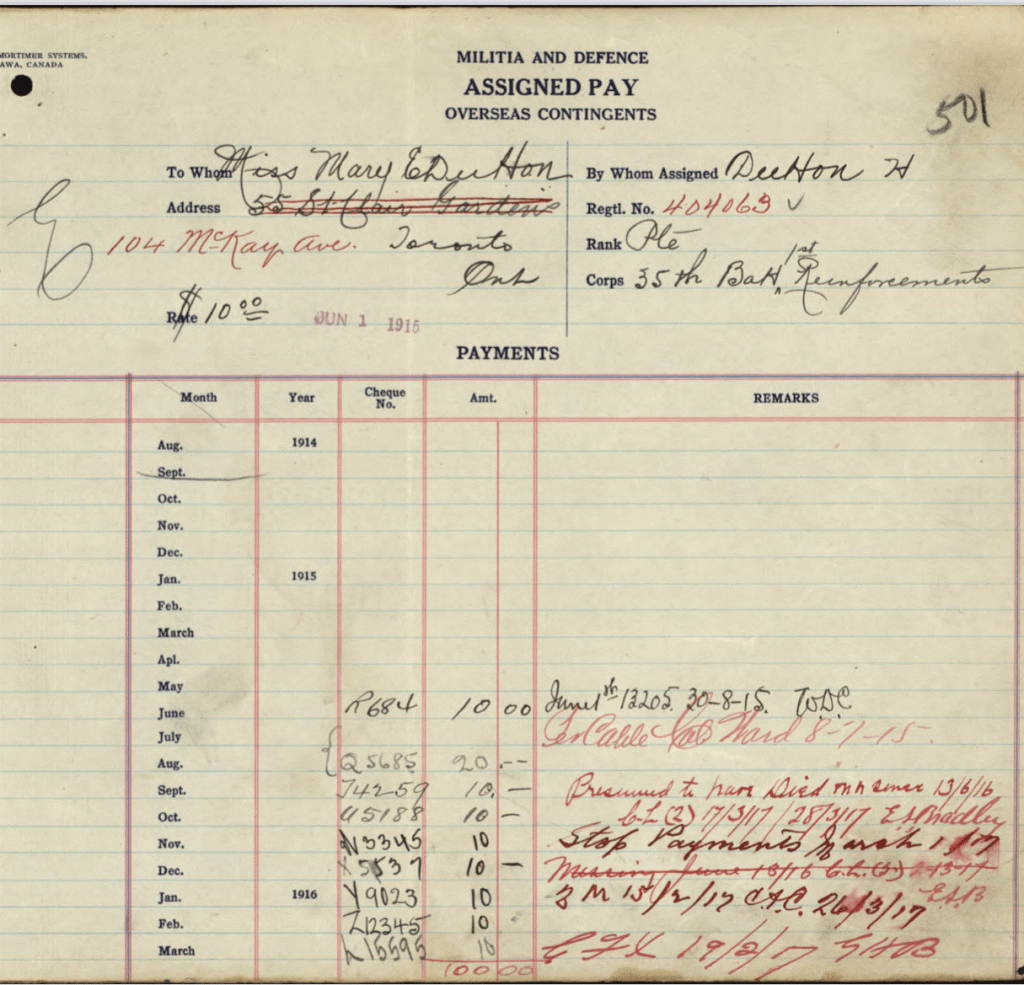 MORTIMER SYSTEMS.
AWA, CANADA
MILITIA AND DEFENCE
ASSIGNED PAY
OVERSEAS CONTINGENTS
501
To Whom Miss Mary E Dutton
By Whom Assigned Dutton H
Address 55 St Clair Gardens
Regtl. No. 404063
104 McKay Ave. Toronto
Ont
Rank Pte
Corps 35th Batt, 1st Reinforcements
Rate $10 00
JUN 1 1915
PAYMENTS
Month Year Cheque No. Amt. REMARKS
Aug. 1914
Sept.
Oct.
Nov.
Dec.
Jan. 1915
Feb.
March
Apl.
May
June R684 10 00 30-8-15.
July 8-7-15.
Aug. Q5685 20.--
Sept. T4259 10.— Presumed to have Died on or since 13/6/16
Oct. U5188 10 — C.L (2) 7/3/17 / 28/3/17 E S Bradley
Nov. 3345 10 Stop Payments March 1/17
Dec. X5537 10 — Missing June 13/16 C.L.
Jan. 1916 Y9023 10 15/2/17 26/3/17 E.S.B
Feb. Z12345 10
March 15595 10 19/2/17
100 00